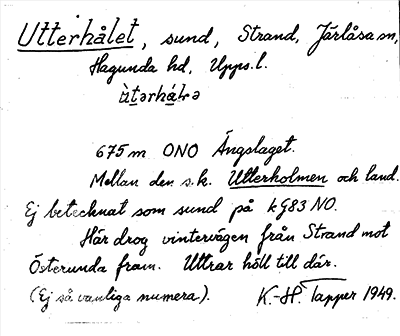 Utterhålet, sund, Strand, Järlåsa sn,
Hagunda hd, Upps.l.
ùtərhá̀lə
675 m ONO Ängslaget.
Mellan den s.k. Utterholmen och land.
Ej betecknat som sund på kg83 NO.
Här drog vintervägen från Strand mot
Österunda fram. Uttrar höll till där.
(Ej så vanliga numera). K.-H. Tapper 1949.